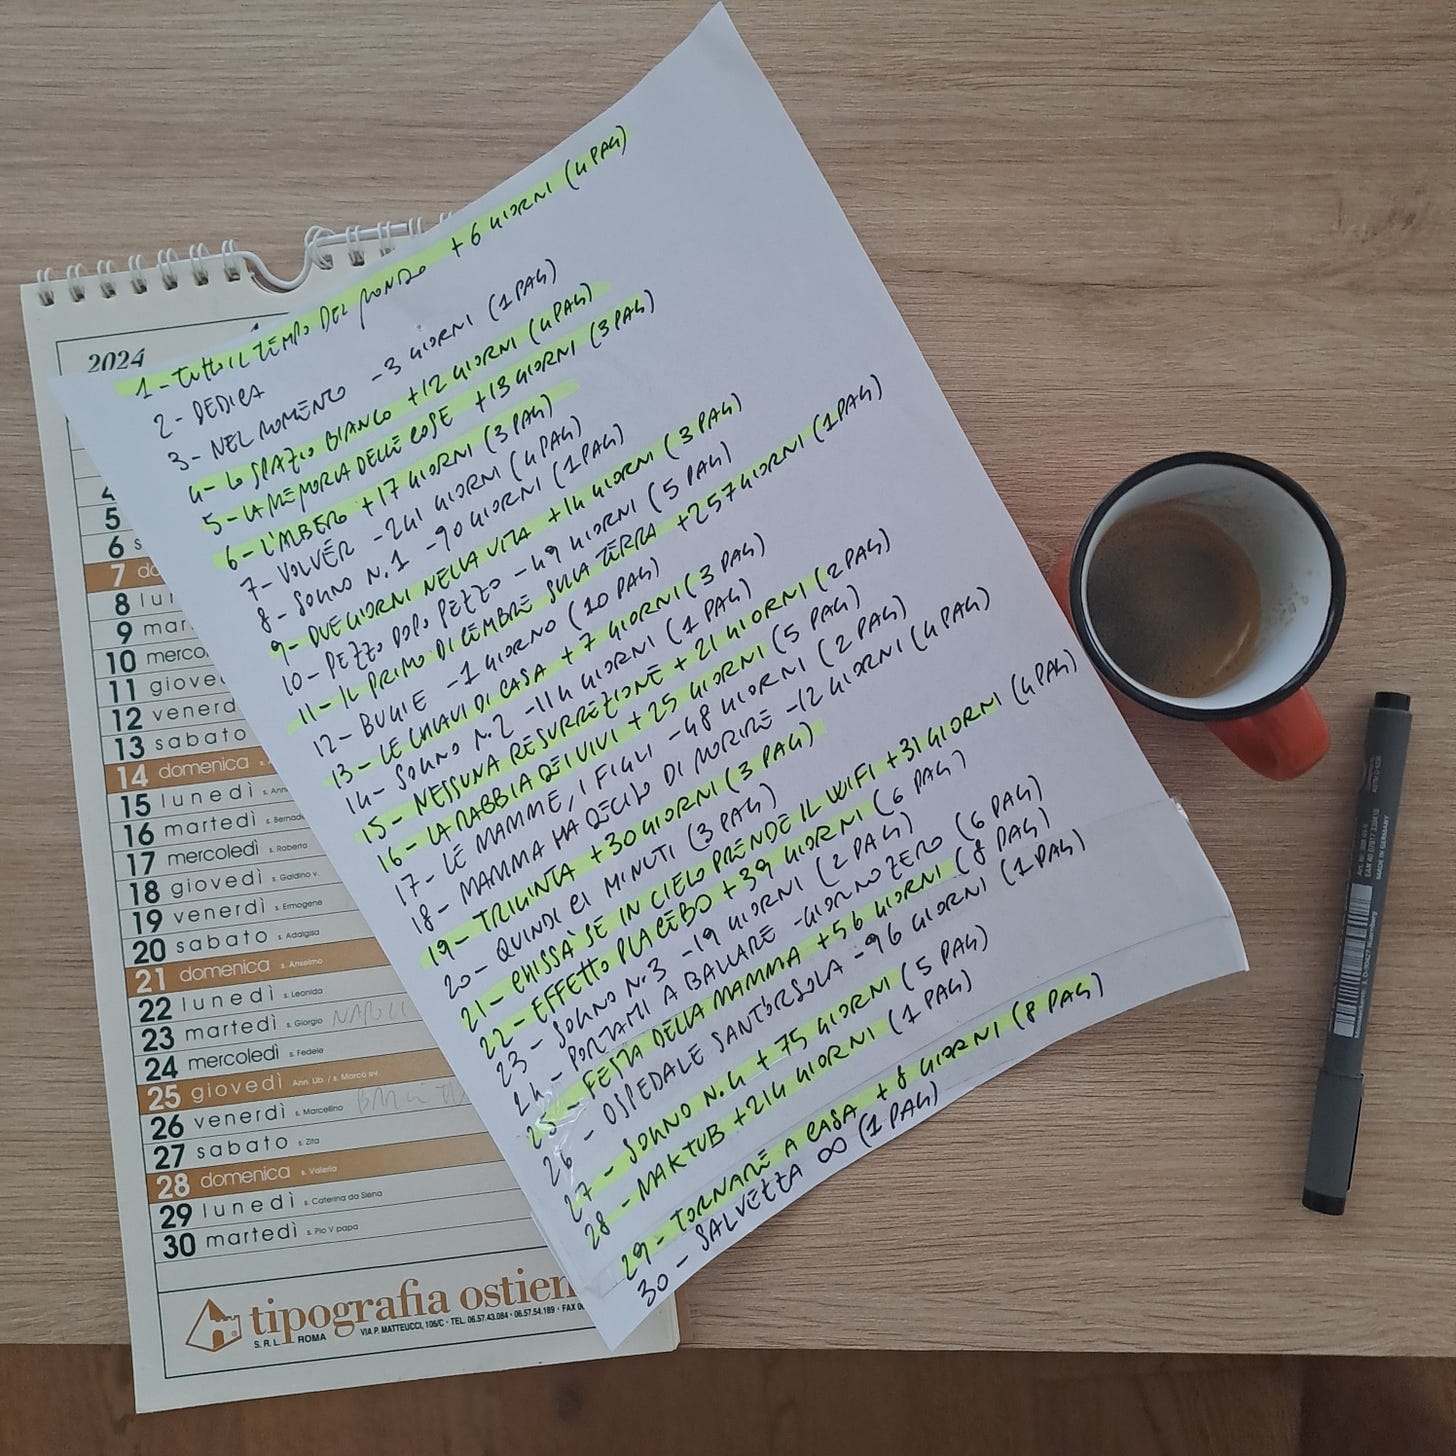 1 - TUTTO IL TEMPO DEL MONDO +6 GIORNI (4 PAG)
2 - DEDICA
3 - NEL MOMENTO -3 GIORNI (1 PAG)
4 - LO SPAZIO BIANCO +12 GIORNI (4 PAG)
5 - LA MEMORIA DELLE COSE +13 GIORNI (3 PAG)
6 - L'ALBERO +17 GIORNI (3 PAG)
7 - VOLVÉR -241 GIORNI (4 PAG)
8 - SOGNO N.1 -90 GIORNI (1 PAG)
9 - DUE GIORNI NELLA VITA +14 GIORNI (3 PAG)
10 - PEZZO DOPO PEZZO -49 GIORNI (5 PAG)
11 - IL PRIMO DICEMBRE SULLA TERRA +257 GIORNI (1 PAG)
12 - BUGIE -1 GIORNO (10 PAG)
13 - LE CHIAVI DI CASA +7 GIORNI (3 PAG)
14 - SOGNO N.2 -114 GIORNI (1 PAG)
15 - NESSUNA RESURREZIONE +21 GIORNI (2 PAG)
16 - LA RABBIA DEI VIVI +25 GIORNI (5 PAG)
17 - LE MAMME, I FIGLI -48 GIORNI (2 PAG)
18 - MAMMA HA DECISO DI MORIRE -12 GIORNI (4 PAG)
19 - TRIGINTA +30 GIORNI (3 PAG)
20 - QUINDICI MINUTI (3 PAG)
21 - CHISSÀ SE IN CIELO PRENDE IL WIFI +31 GIORNI (4 PAG)
22 - EFFETTO PLACEBO +39 GIORNI (6 PAG)
23 - SOGNO N.3 -19 GIORNI (2 PAG)
24 - PORTAMI A BALLARE -GIORNO ZERO (6 PAG)
25 - FESTA DELLA MAMMA +56 GIORNI (8 PAG)
26 - OSPEDALE SANT'ORSOLA -96 GIORNI (1 PAG)
27 - SOGNO N.4 +75 GIORNI (5 PAG)
28 - MAKTUB +214 GIORNI (1 PAG)
29 - TORNARE A CASA +8 GIORNI (8 PAG)
30 - SALVEZZA ∞ (1 PAG)
2024
4
5
6 s
7 do
8 lu
9 mar
10 merco
11 giove
12 venerd
13 sabato
14 domenica
15 lunedì s. Ann
16 martedì s. Bernade
17 mercoledì s. Roberto
18 giovedì s. Galdino v.
19 venerdì s. Ermogene
20 sabato s. Adalgisa
21 domenica s. Anselmo
22 lunedì s. Leonida
23 martedì s. Giorgio NAPOLI
24 mercoledì s. Fedele
25 giovedì Ann. Lib. / s. Marco ev
26 venerdì s. Marcellino
27 sabato s. Zita
28 domenica s. Valeria
29 lunedì s. Caterina da Siena
30 martedì s. Pio V papa
tipografia ostien
S.R.L. ROMA VIA P. MATTEUCCI, 106/C · TEL. 06.57.43.084 · 06.57.54.189 · FAX 06
MADE IN GERMANY